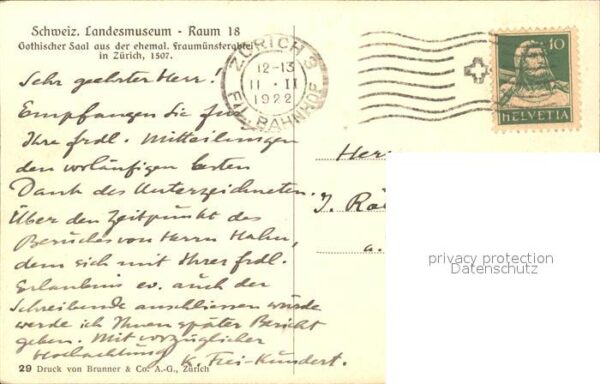 Schweiz. Landesmuseum - Raum 18
Gothischer Saal aus der ehemal. Fraumünsterabtei
in Zürich, 1507.
Sehr geehrter Herr!
Empfangen Sie für
Ihre frdl. Mitteilungen
den vorläufigen besten
Dank des Unterzeichneten.
Über den Zeitpunkt des
Besuches von Herrn Hahn,
dem sich mit Ihrer frdl.
Erlaubnis ev. auch der
Schreibende anschliessen würde
werde ich Ihnen später Bericht
geben. Mit vorzüglicher
Hochachtung K. Frei-Kundert.
29 Druck von Brunner & Co. A.-G., Zürich
ZÜRICH 9
12-13
11 · II
1922
BAHNHOF
10
HELVETIA
Her
J.
a.
privacy protection
Datenschutz